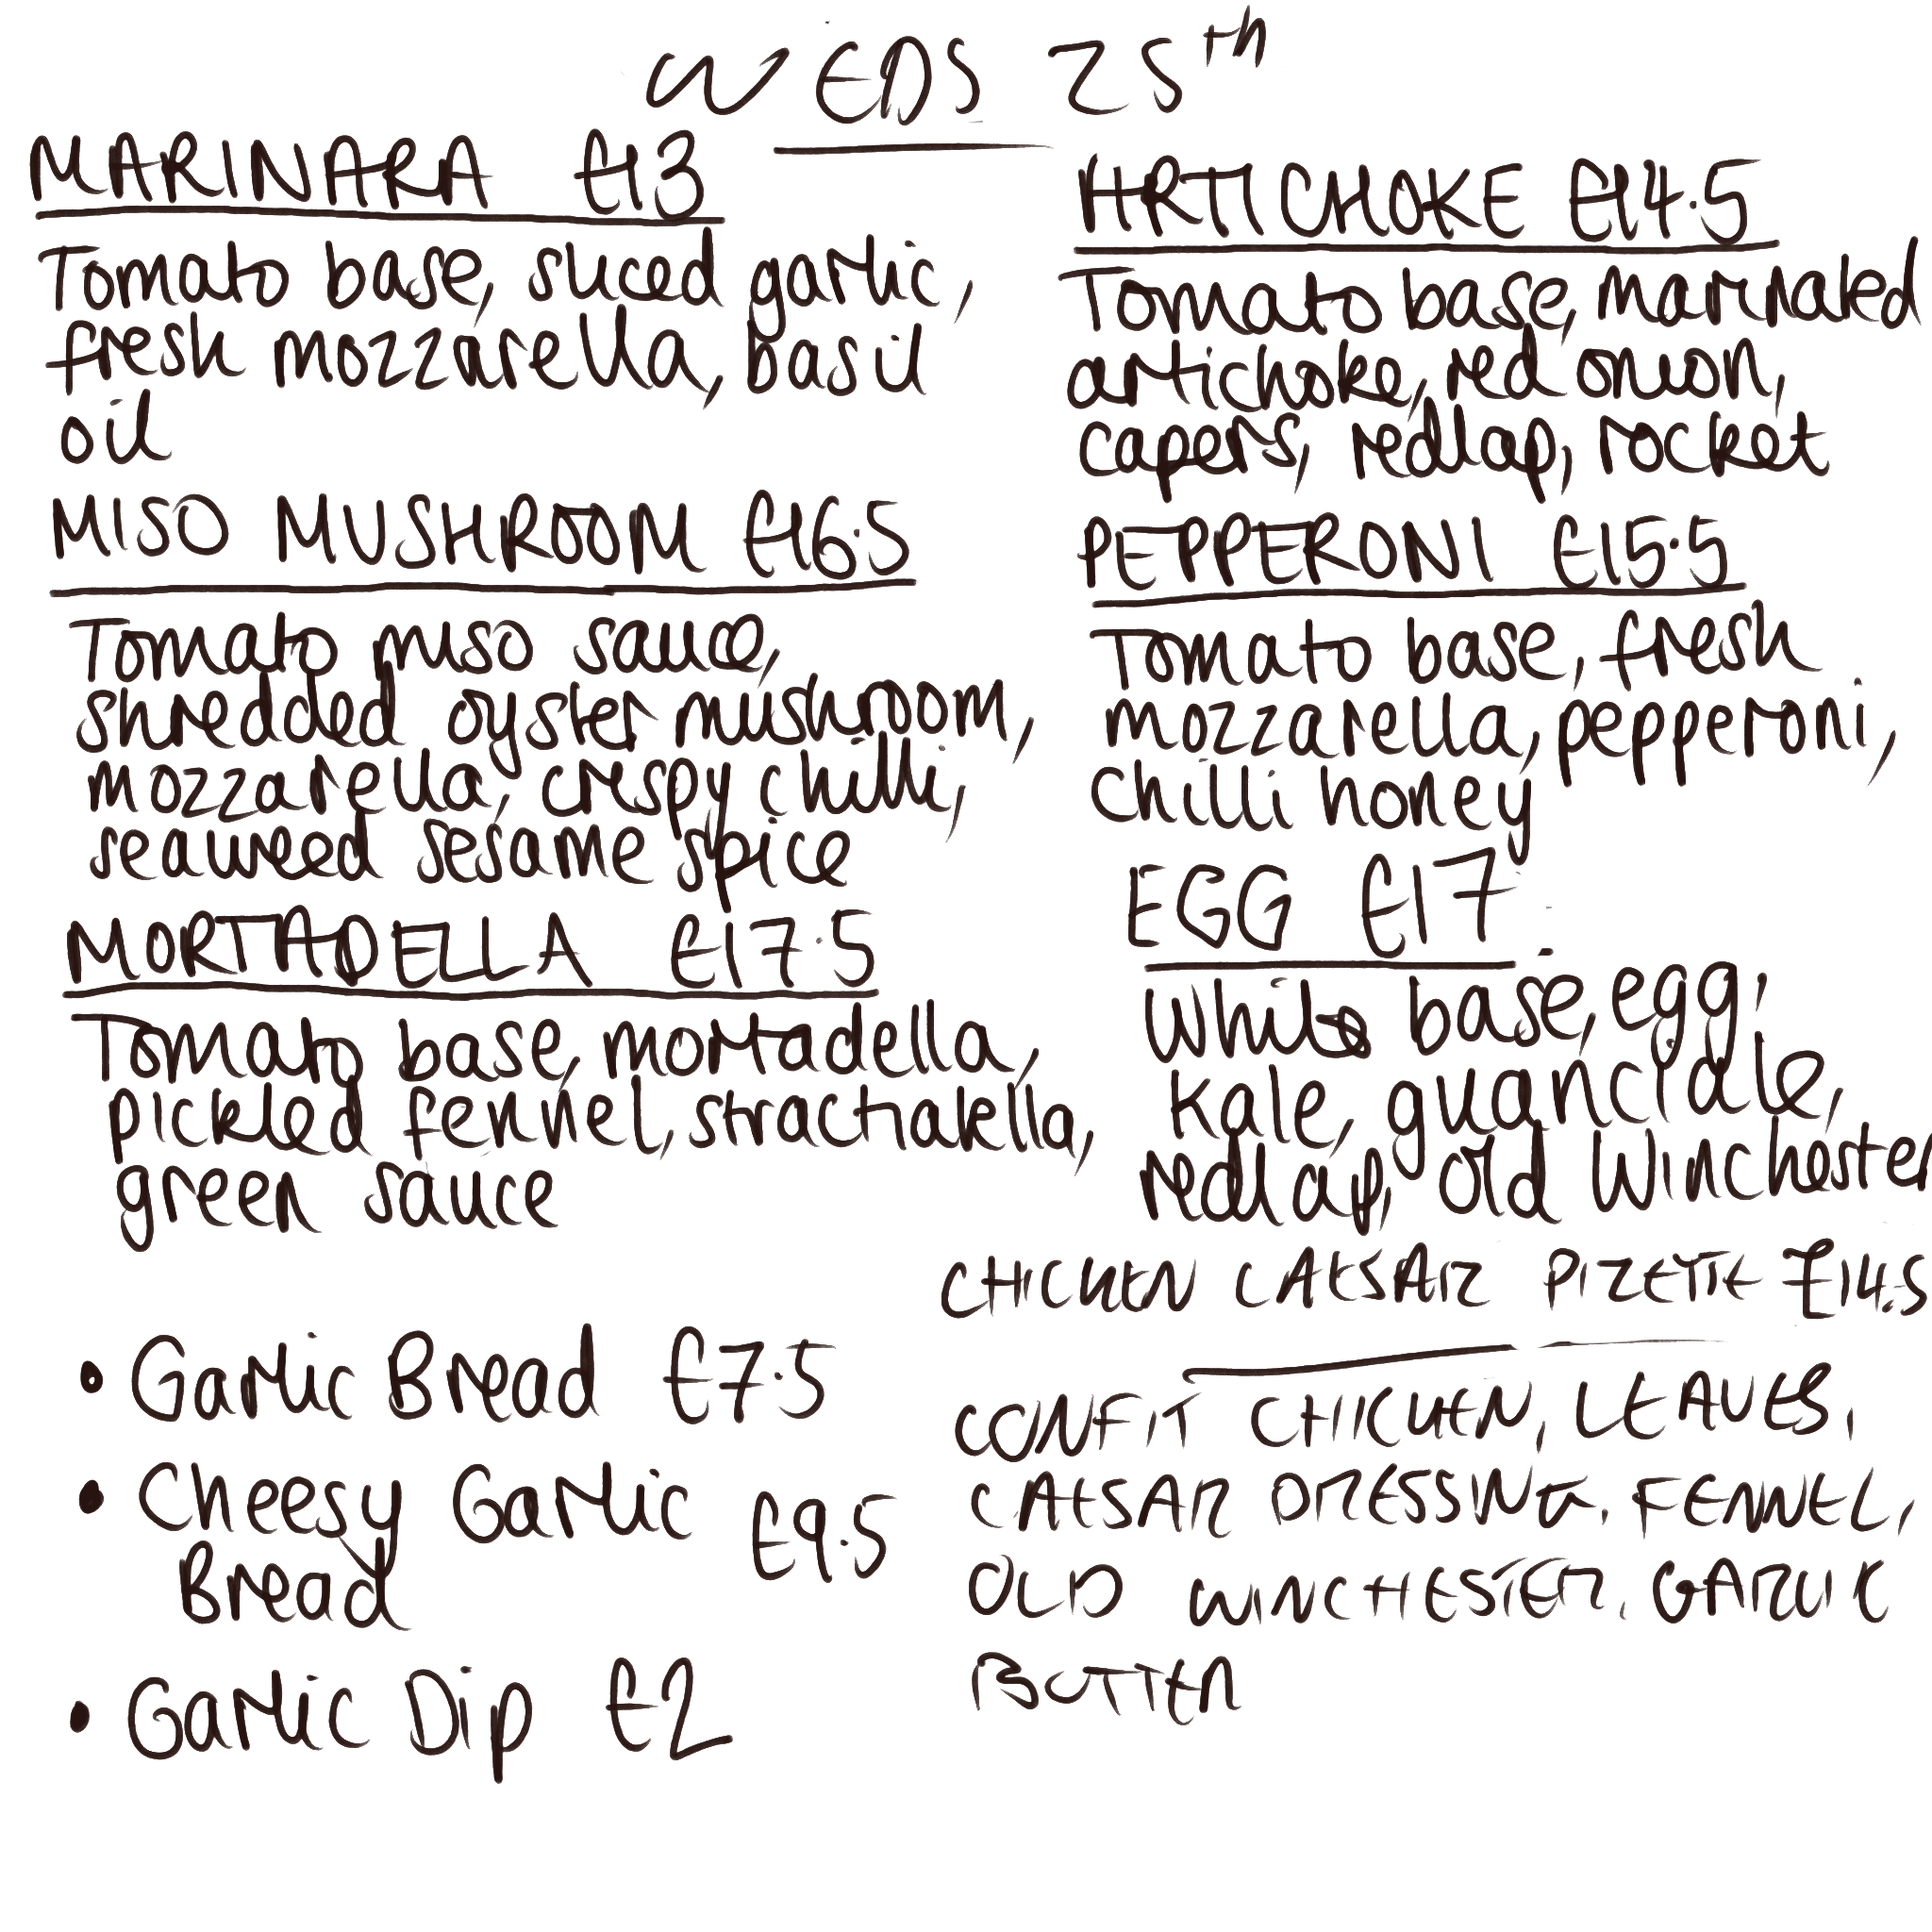 WEDS 25th
MARINARA £13
Tomato base, sliced garlic,
fresh mozzarella, basil
oil
MISO MUSHROOM £16.5
Tomato miso sauce,
shredded oyster mushroom,
mozzarella, crispy chilli,
seaweed sesame spice
MORTADELLA £17.5
Tomato base, mortadella,
pickled fennel, strachatella,
green sauce
• Garlic Bread £7.5
• Cheesy Garlic £9.5
Bread
• Garlic Dip £2
ARTICHOKE £14.5
Tomato base, marinated
artichoke, red onion,
capers, redlap, rocket
PEPPERONI £15.5
Tomato base, fresh
mozzarella, pepperoni,
chilli honey
EGG £17
White base, egg,
kale, guanciale,
redlap, old Winchester
CHICKEN CAESAR PIZETTE £14.5
CONFIT CHICKEN, LEAVES,
CAESAR DRESSING, FENNEL,
OLD WINCHESTER, GARLIC
BUTTER